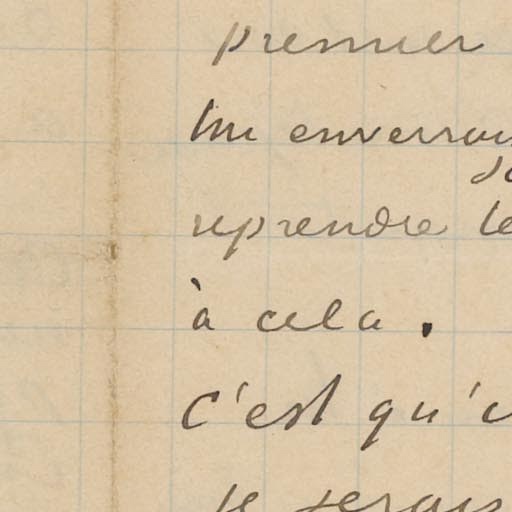 premier
enverrai
reprendre le
à cela.
c'est qu'
je serais